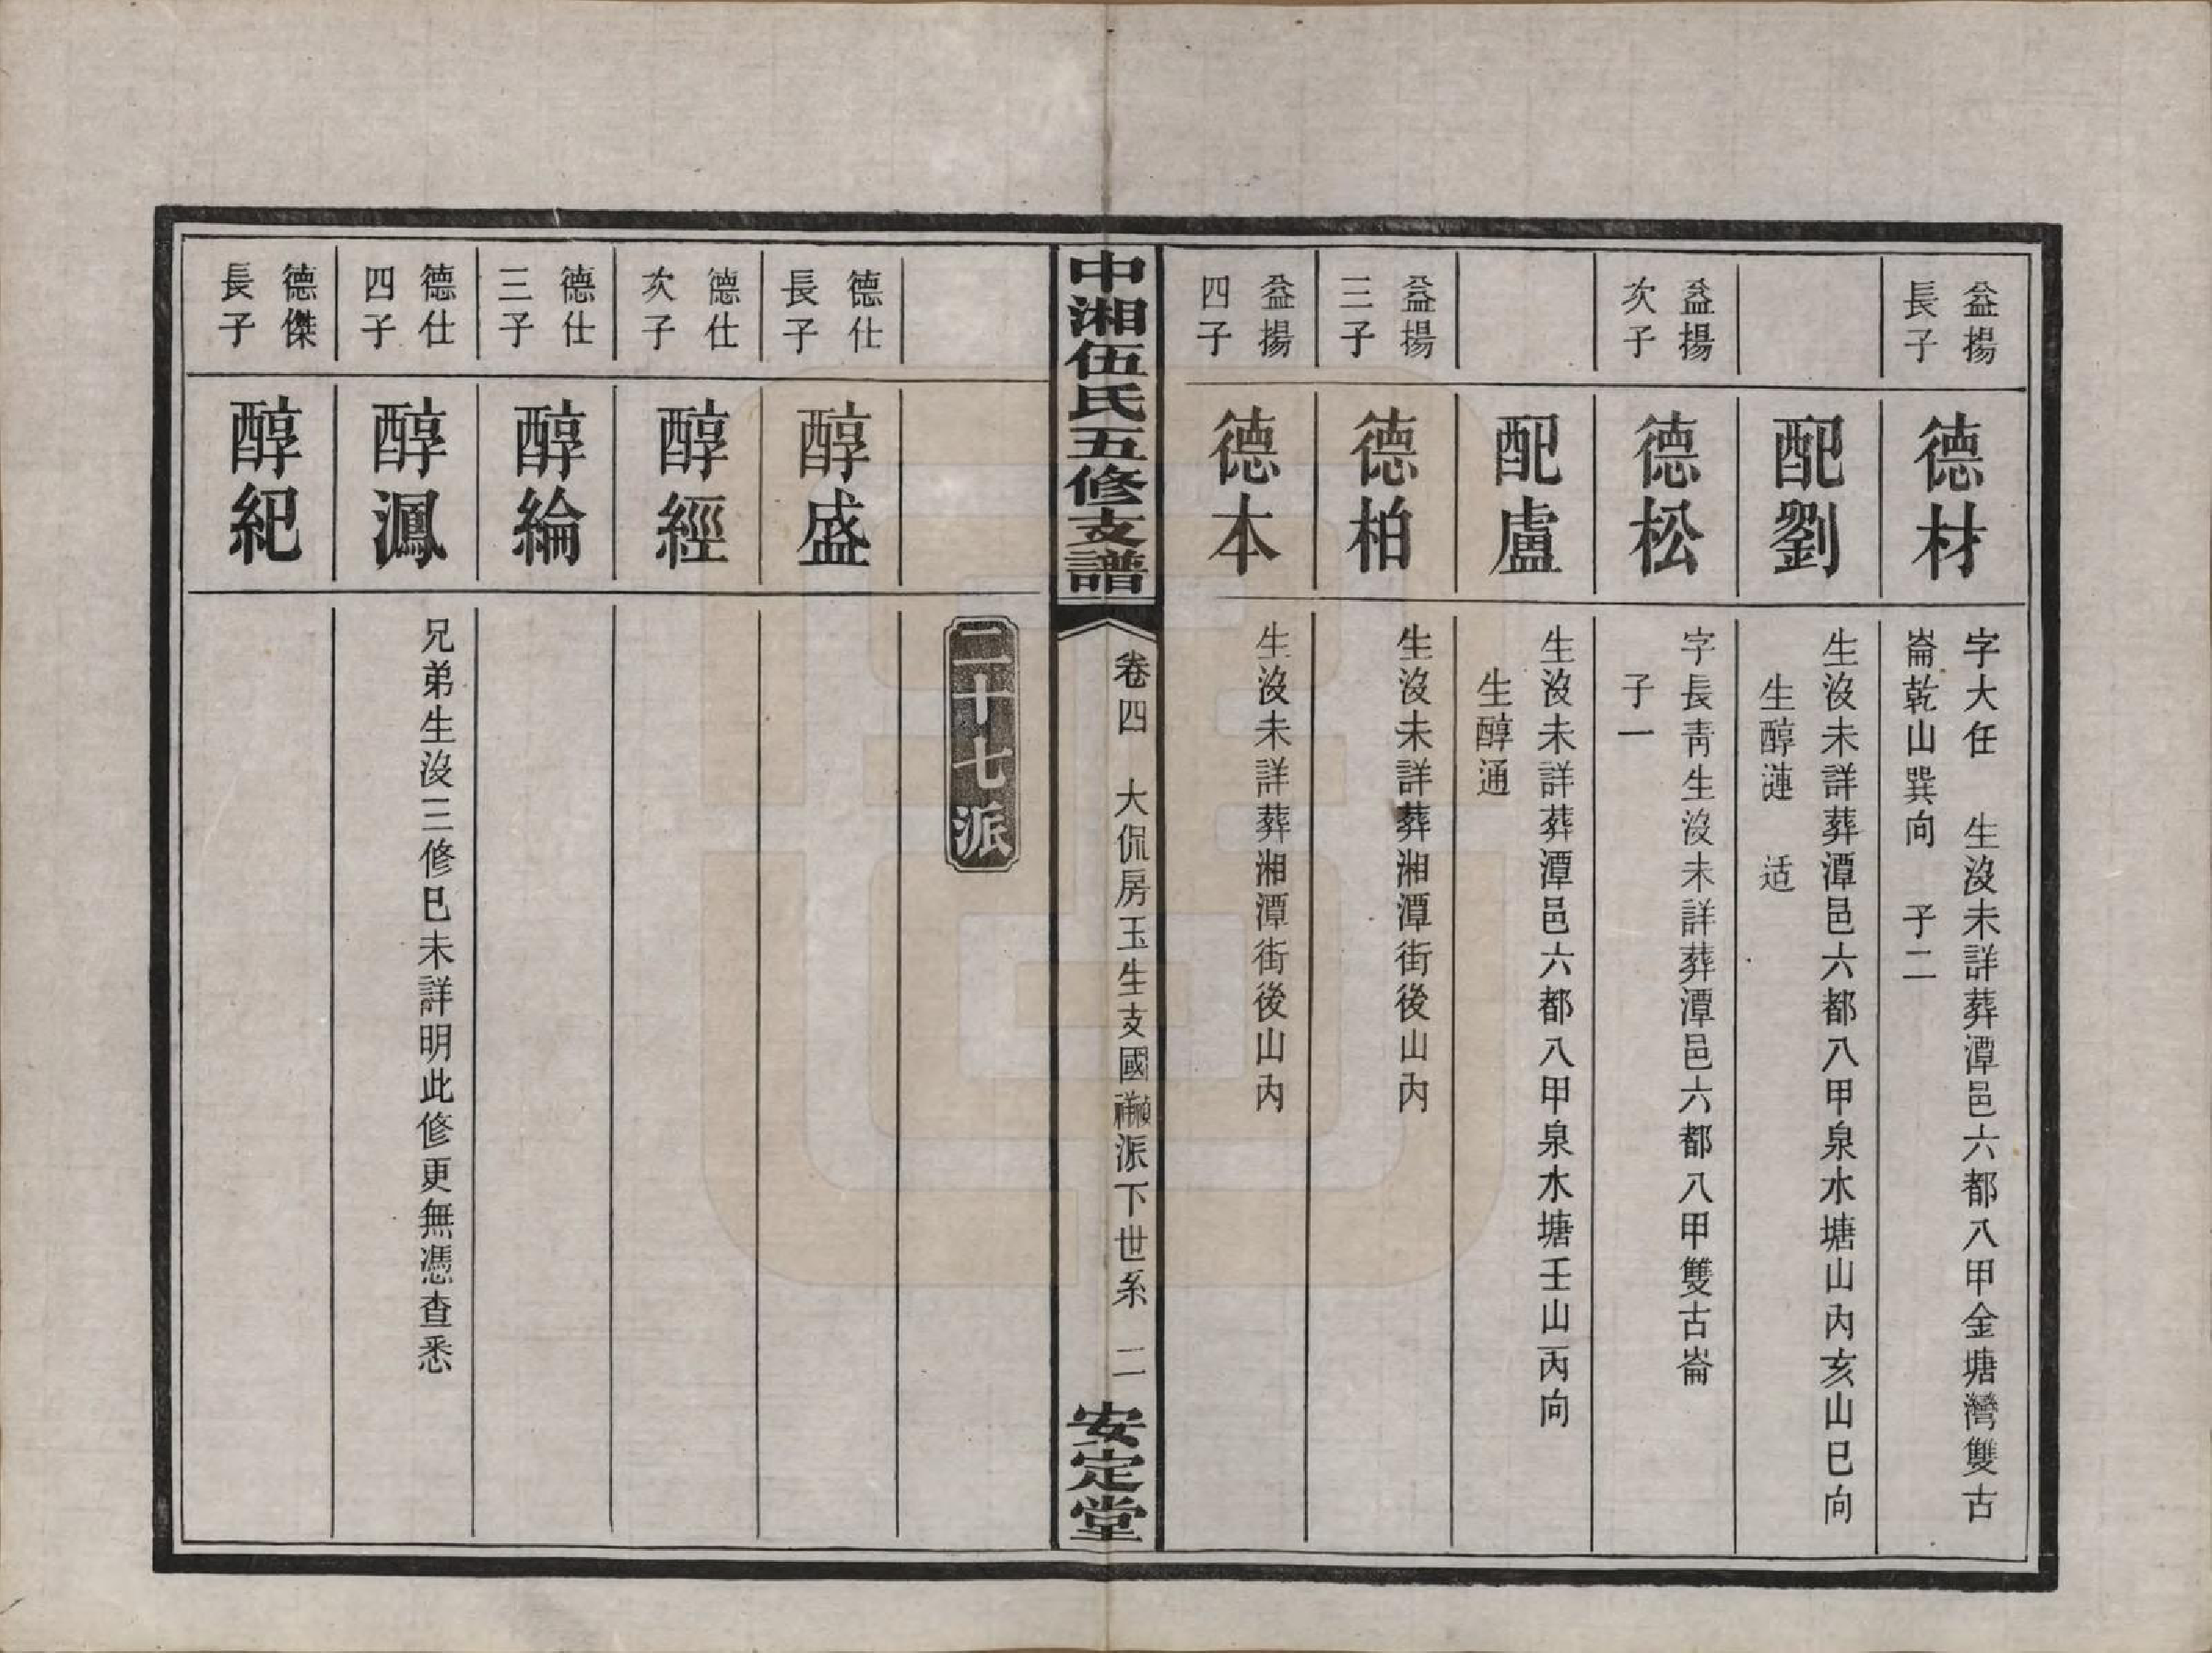 益揚
長子
德材
字大任　生沒未詳葬潭邑六都八甲金塘灣雙古
崙乾山巽向　子二
配劉
生沒未詳葬潭邑六都八甲泉水塘山內亥山巳向
生醇漣　适
益揚
次子
德松
字長靑生沒未詳葬潭邑六都八甲雙古崙
子一
配盧
生沒未詳葬潭邑六都八甲泉水塘壬山丙向
生醇通
益揚
三子
德柏
生沒未詳葬湘潭街後山內
益揚
四子
德本
生沒未詳葬湘潭街後山內
中湘伍氏五修支譜
卷四　大侃房玉生支國禎祥派下世系　二
安定堂
二十七派
德仕
長子
醇盛
德仕
次子
醇經
德仕
三子
醇綸
德仕
四子
醇灃
兄弟生沒三修已未詳明此修更無憑查悉
德傑
長子
醇紀